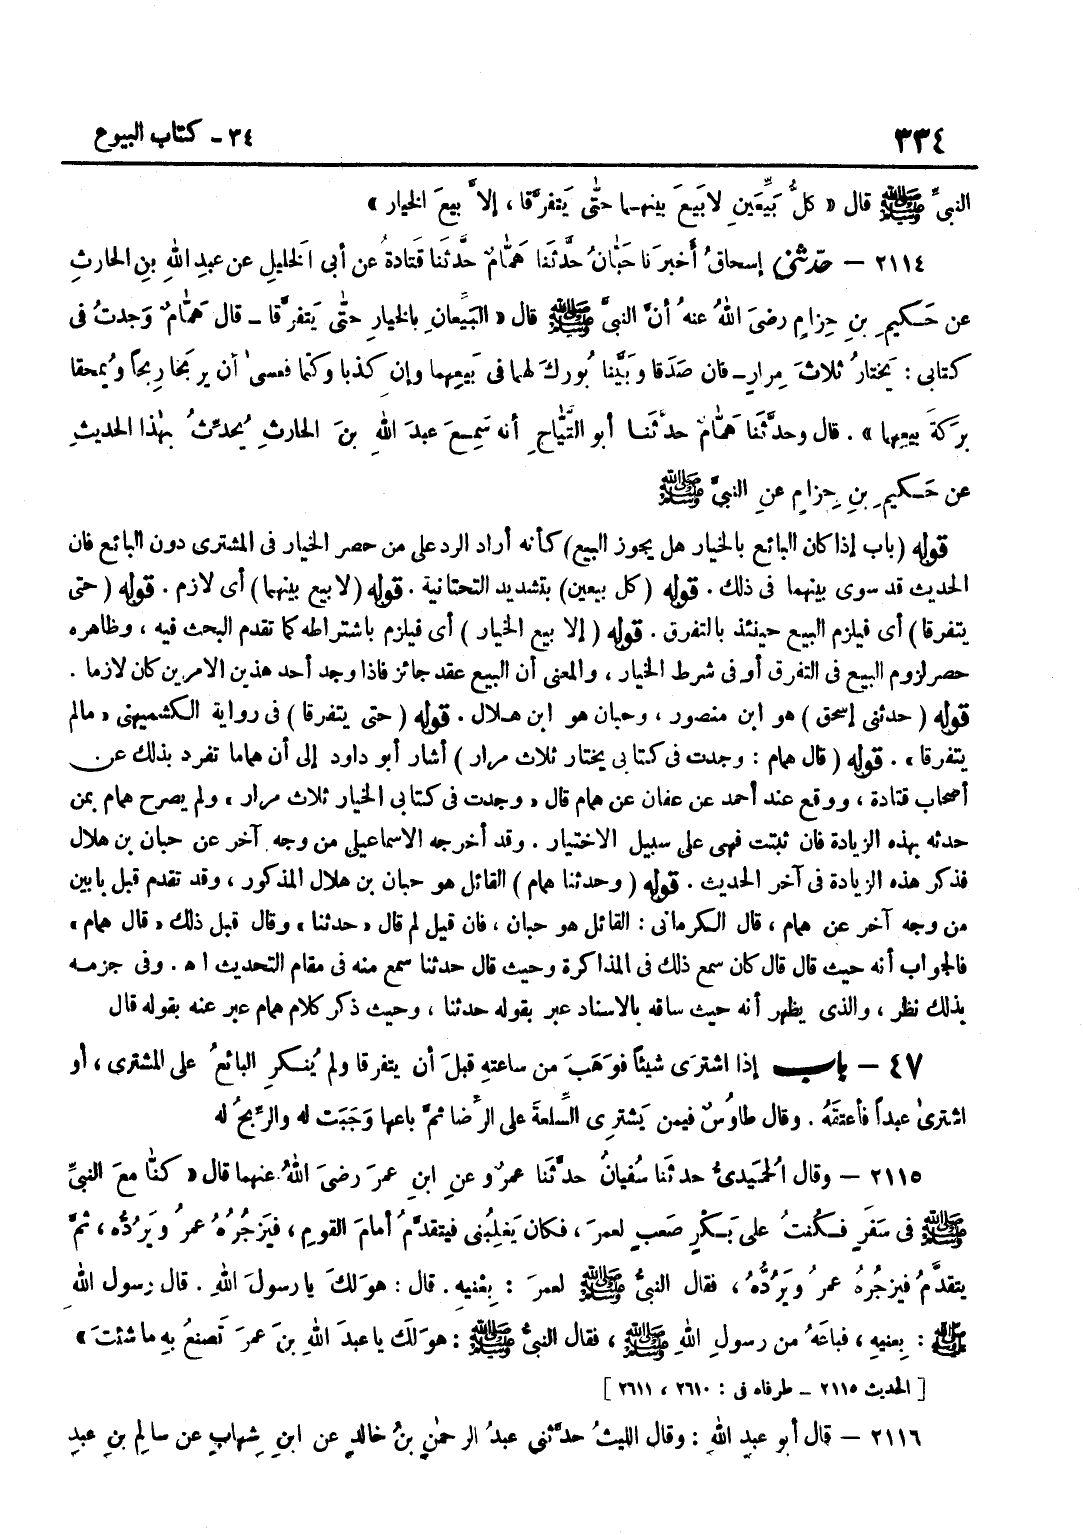 ٣٣٤
٣٤ - كتاب البيوع
النبيِّ ﷺ قال « كلُّ بَيِّعَينِ لا بَيعَ بينهـما حتّٰى يَتفرَّقا ، إلاَّ بيعَ الخيار »
٢١١٤ – حدّثنى إسحاقُ أخبرَنا حَبّانُ حدَّثَنا هَمّامٌ حدَّثَنا قَتادةُ عن أبى الخليلِ عن عبدِ اللهِ بنِ الحارثِ
عن حَـكيمِ بنِ حِزامٍ رضىَ اللهُ عنهُ أنَّ النبىَّ ﷺ قال « البَيِّعانِ بالخيارِ حتّٰى يَتفرَّقا – قال هَمّامٌ وَجدتُ فى
كتابى : يَختارُ ثلاثَ مِرارٍ – فان صَدَقا وبَيَّنا بُورِكَ لهما فى بَيعِهما وإن كذبا وكتما فعسىٰ أن يربَحا رِبحاً ويُمحقا
برَكةَ بيعِهما » . قال وحدَّثَنا هَمّامٌ حدثَنـا أبو التَّيّاحِ أنه سَمِـعَ عبدَ اللهِ بنَ الحارثِ يُحدِّثُ بهٰذا الحديثِ
عن حَـكيمِ بنِ حِزامٍ عنِ النبىِّ ﷺ
قوله (باب إذا كان البائع بالخيار هل يجوز البيع) كأنه أراد الرد على من حصر الخيار فى المشترى دون البائع فان
الحديث قد سوى بينهما فى ذلك . قوله (كل بيعين) بتشديد التحتانية . قوله (لا بيع بينهما) أى لازم . قوله (حتى
يتفرقا) أى فيلزم البيع حينئذ بالتفرق . قوله (إلا بيع الخيار) أى فيلزم باشتراطه كما تقدم البحث فيه ، وظاهره
حصر لزوم البيع فى التفرق أو فى شرط الخيار ، والمعنى أن البيع عقد جائز فاذا وجد أحد هذين الامرين كان لازما .
قوله (حدثنى إسحق) هو ابن منصور ، وحبان هو ابن هـلال . قوله (حتى يتفرقا) فى رواية الكشميهنى « مالم
يتفرقا » . قوله (قال همام : وجدت فى كتابى يختار ثلاث مرار) أشار أبو داود إلى أن هماما تفرد بذلك عن
أصحاب قتادة ، ووقع عند أحمد عن عفان عن همام قال « وجدت فى كتابى الخيار ثلاث مرار » ولم يصرح همام بمن
حدثه بهذه الزيادة فان ثبتت فهى على سبيل الاختيار . وقد أخرجه الاسماعيلى من وجه آخر عن حبان بن هلال
فذكر هذه الزيادة فى آخر الحديث . قوله (وحدثنا همام) القائل هو حبان بن هلال المذكور ، وقد تقدم قبل بابين
من وجه آخر عن همام ، قال الكرمانى : القائل هو حبان ، فان قيل لم قال « حدثنا » وقال قبل ذلك « قال همام »
فالجواب أنه حيث قال قال كان سمع ذلك فى المذاكرة وحيث قال حدثنا سمع منه فى مقام التحديث ا هـ . وفى جزمـه
بذلك نظر ، والذى يظهر أنه حيث ساقه بالاسناد عبر بقوله حدثنا ، وحيث ذكر كلام همام عبر عنه بقوله قال
٤٧ – باب إذا اشترَى شيئاً فوَهَبَ من ساعتهِ قبلَ أن يتفرقا ولم يُنـكرِ البائعُ على المشترى ، أو
اشترىٰ عبداً فأعتقَهُ . وقال طاوُسٌ فيمن يَشترِى السِّلعةَ على الرِّضا ثمَّ باعها وَجَبَت له والرِّبحُ له
٢١١٥ – وقال الحُمَيدىُّ حدثَنا سُفيانُ حدثَنا عمرٌو عنِ ابنِ عمرَ رضىَ اللهُ عنهما قال « كنّا معَ النبىِّ
ﷺ فى سَفَرٍ فـكُنتُ على بَـكْرٍ صَعبٍ لعمرَ ، فكان يَغلِبُنى فيتقدَّمُ أمامَ القومِ ، فيَزجُرُهُ عمرُ ويَرُدُّه ، ثمَّ
يتقدَّمُ فيزجُرهُ عمرُ ويَرُدُّهُ ، فقال النبىُّ ﷺ لعمرَ : بِعْنيهِ . قال : هوَ لكَ يا رسولَ اللهِ . قال رسولُ اللهِ
ﷺ : بِعنيهِ ، فباعَهُ من رسولِ اللهِ ﷺ ، فقال النبىُّ ﷺ : هوَ لَك يا عبدَ اللهِ بنَ عمرَ تَصنعُ بهِ ما شئتَ »
[ الحديث ٢١١٥ – طرفاه فى : ٢٦١٠ ، ٢٦١١ ]
٢١١٦ – قال أبو عبدِ اللهِ : وقال الليثُ حدَّثنى عبدُ الرحمٰنِ بنُ خالدٍ عن ابنِ شِهابٍ عن سالمِ بنِ عبدِ